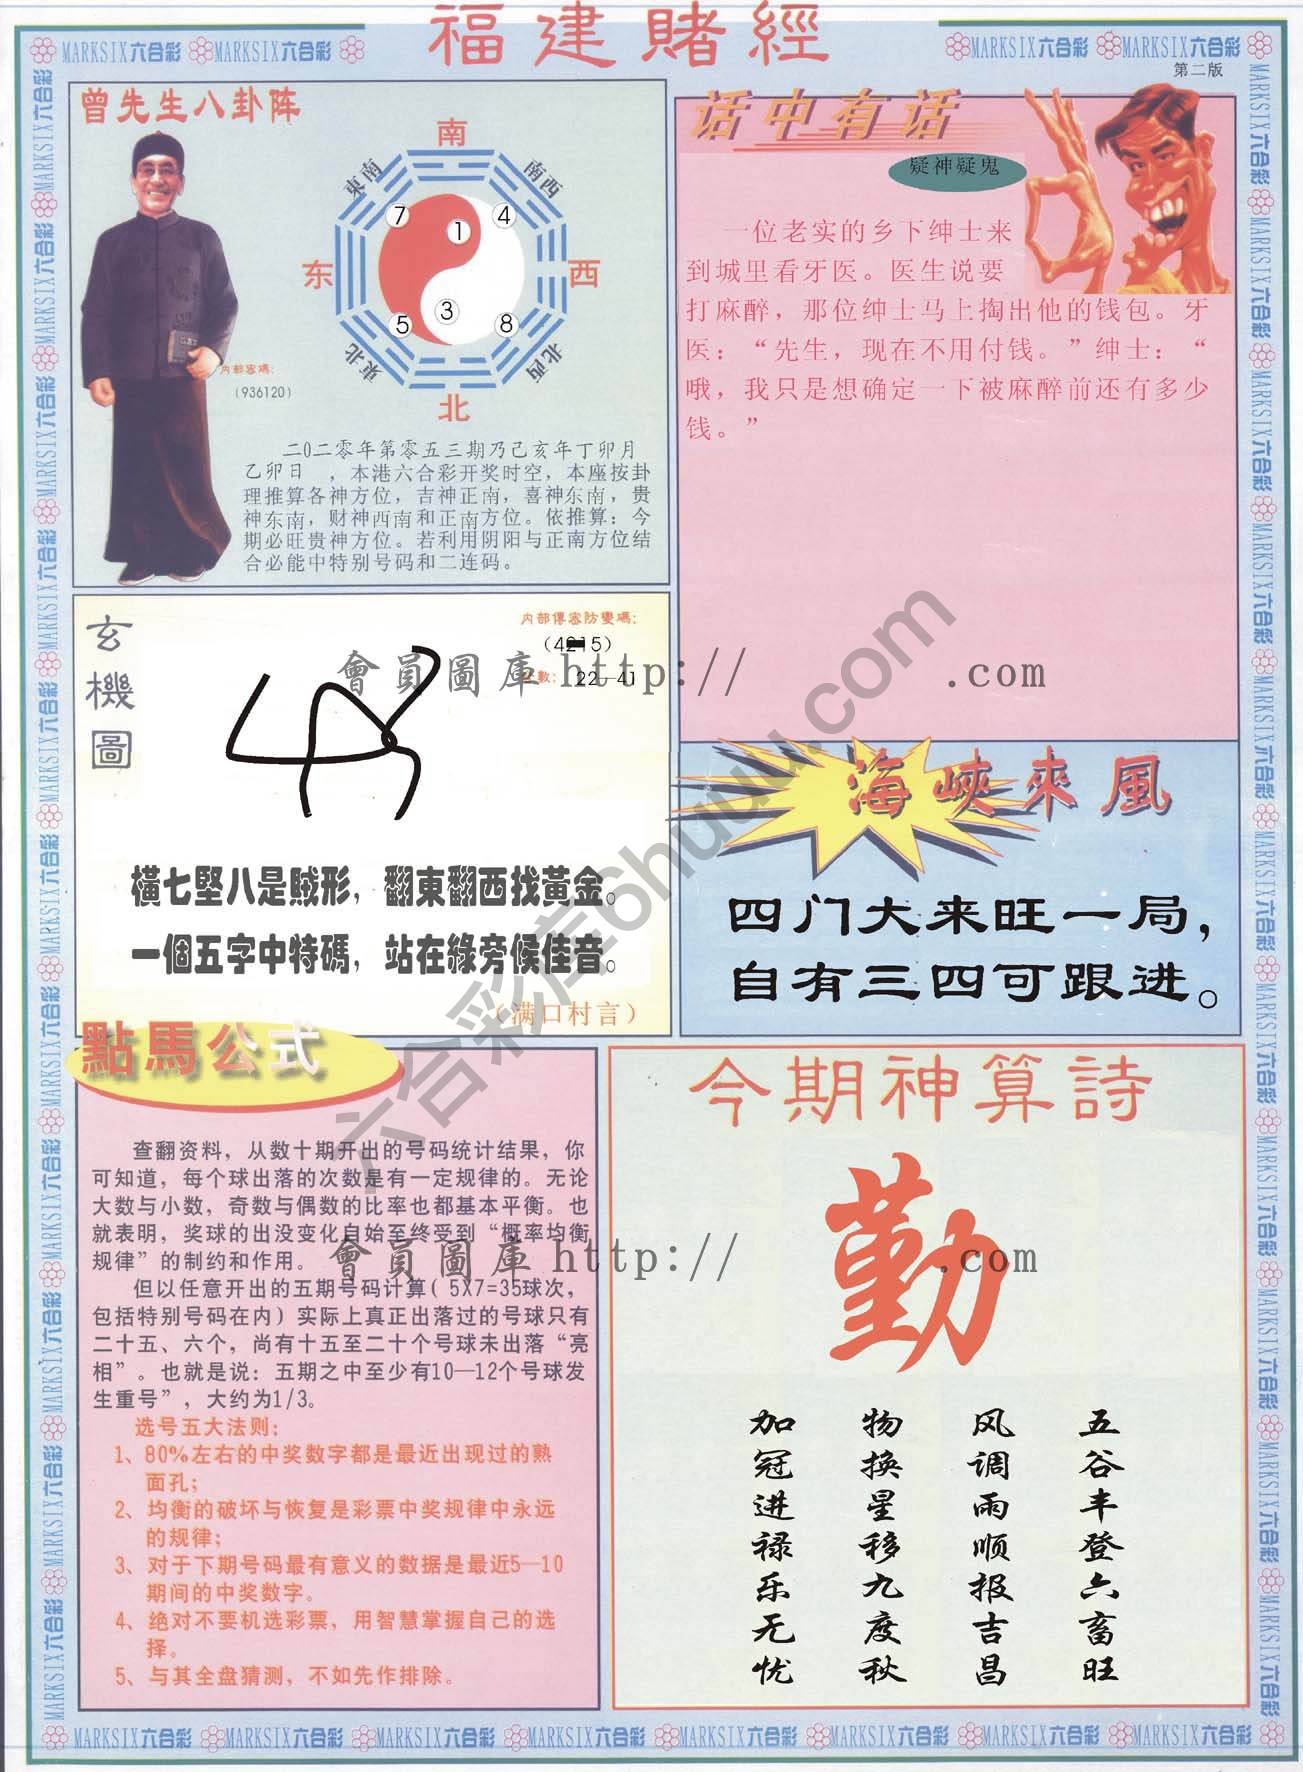 福建賭經
MARKSIX六合彩 MARKSIX六合彩
MARKSIX六合彩 MARKSIX六合彩
第二版
曾先生八卦阵
南
東南
南西
7
1
4
东
西
5
3
8
東北
北西
北
内部密碼:
(936120)
二0二零年第零五三期乃己亥年丁卯月
乙卯日 ，本港六合彩开奖时空，本座按卦
理推算各神方位，吉神正南，喜神东南，贵
神东南，财神西南和正南方位。依推算：今
期必旺贵神方位。若利用阴阳与正南方位结
合必能中特别号码和二连码。
话中有话
疑神疑鬼
一位老实的乡下绅士来
到城里看牙医。医生说要
打麻醉，那位绅士马上掏出他的钱包。牙
医：“先生，现在不用付钱。”绅士：“
哦，我只是想确定一下被麻醉前还有多少
钱。”
玄機圖
内部傳密防變碼:
22—41
會員圖庫 http:// .com
橫七竪八是賊形，翻東翻西找黃金。
一個五字中特碼，站在綠旁候佳音。
（满口村言）
海峽來風
四门大来旺一局，
自有三四可跟进。
點馬公式
查翻资料，从数十期开出的号码统计结果，你
可知道，每个球出落的次数是有一定规律的。无论
大数与小数，奇数与偶数的比率也都基本平衡。也
就表明，奖球的出没变化自始至终受到“概率均衡
规律”的制约和作用。
但以任意开出的五期号码计算( 5X7=35球次，
包括特别号码在内）实际上真正出落过的号球只有
二十五、六个，尚有十五至二十个号球未出落“亮
相”。也就是说：五期之中至少有10—12个号球发
生重号”，大约为1/3。
选号五大法则；
1、80%左右的中奖数字都是最近出现过的熟
面孔；
2、均衡的破坏与恢复是彩票中奖规律中永远
的规律；
3、对于下期号码最有意义的数据是最近5—10
期间的中奖数字。
4、绝对不要机选彩票，用智慧掌握自己的选
择。
5、与其全盘猜测，不如先作排除。
會員圖庫 http:// .com
今期神算詩
勤
五谷丰登六畜旺
风调雨顺报吉昌
物换星移九度秋
加冠进禄乐无忧
六合彩库6huuu.com
MARKSIX六合彩 MARKSIX六合彩 MARKSIX六合彩 MARKSIX六合彩 MARKSIX六合彩 MARKSIX六合彩 MARKSIX六合彩 MARKSIX六合彩